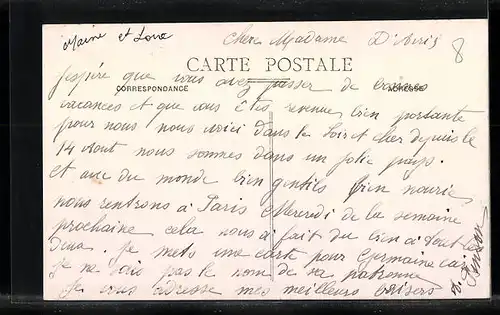 Maine et Loire
Chère Madame D'Avis
8
CARTE POSTALE
CORRESPONDANCE
ADRESSE
J'espère que vous avez passer de bonnes
vacances et que vous êtes revenue bien portante
pour nous nous voici dans le Loir et Cher depuis le
14 Aout nous sommes dans un jolie pays.
et avec du monde bien gentils bien nourrie,
nous rentrons à Paris Mercredi de la semaine
prochaine cela nous a fait du bien à tout les
deux. Je mets une carte pour Germaine car
je ne sais pas le nom de sa patronne
Je vous adresse mes meilleurs baisers